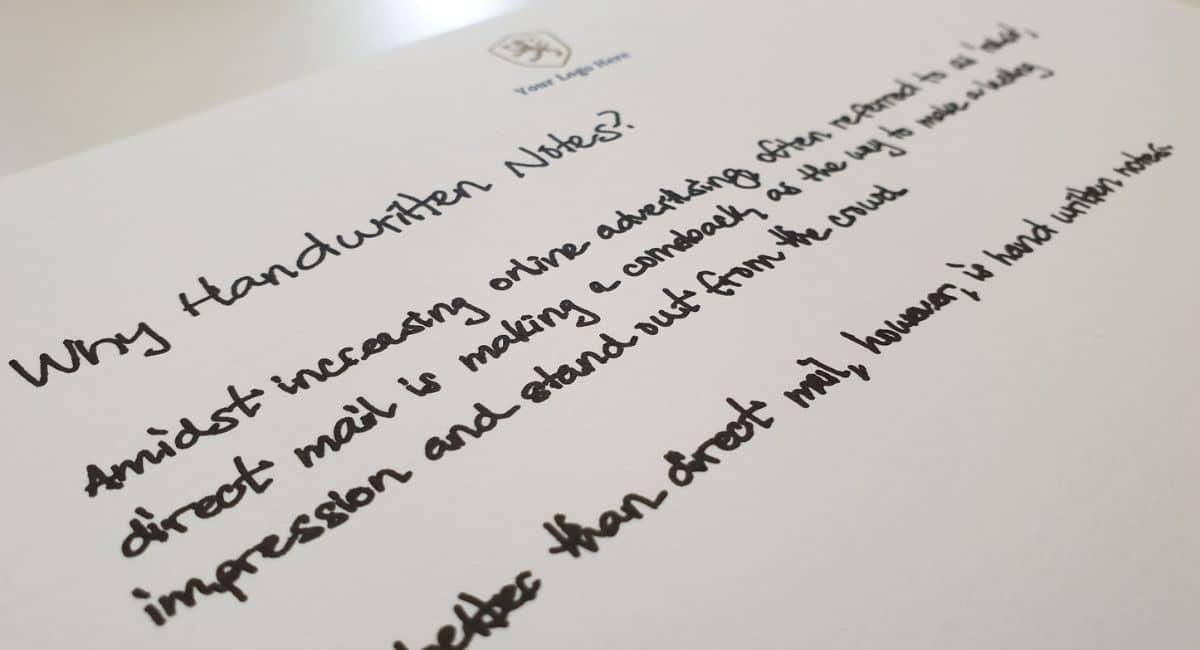 Your Logo Here
Why Handwritten Notes?
Amidst increasing online advertising, often referred to as
direct mail is making a comeback, as the way to make a lasting
impression and stand out from the crowd
better than direct mail, however, is hand written notes.